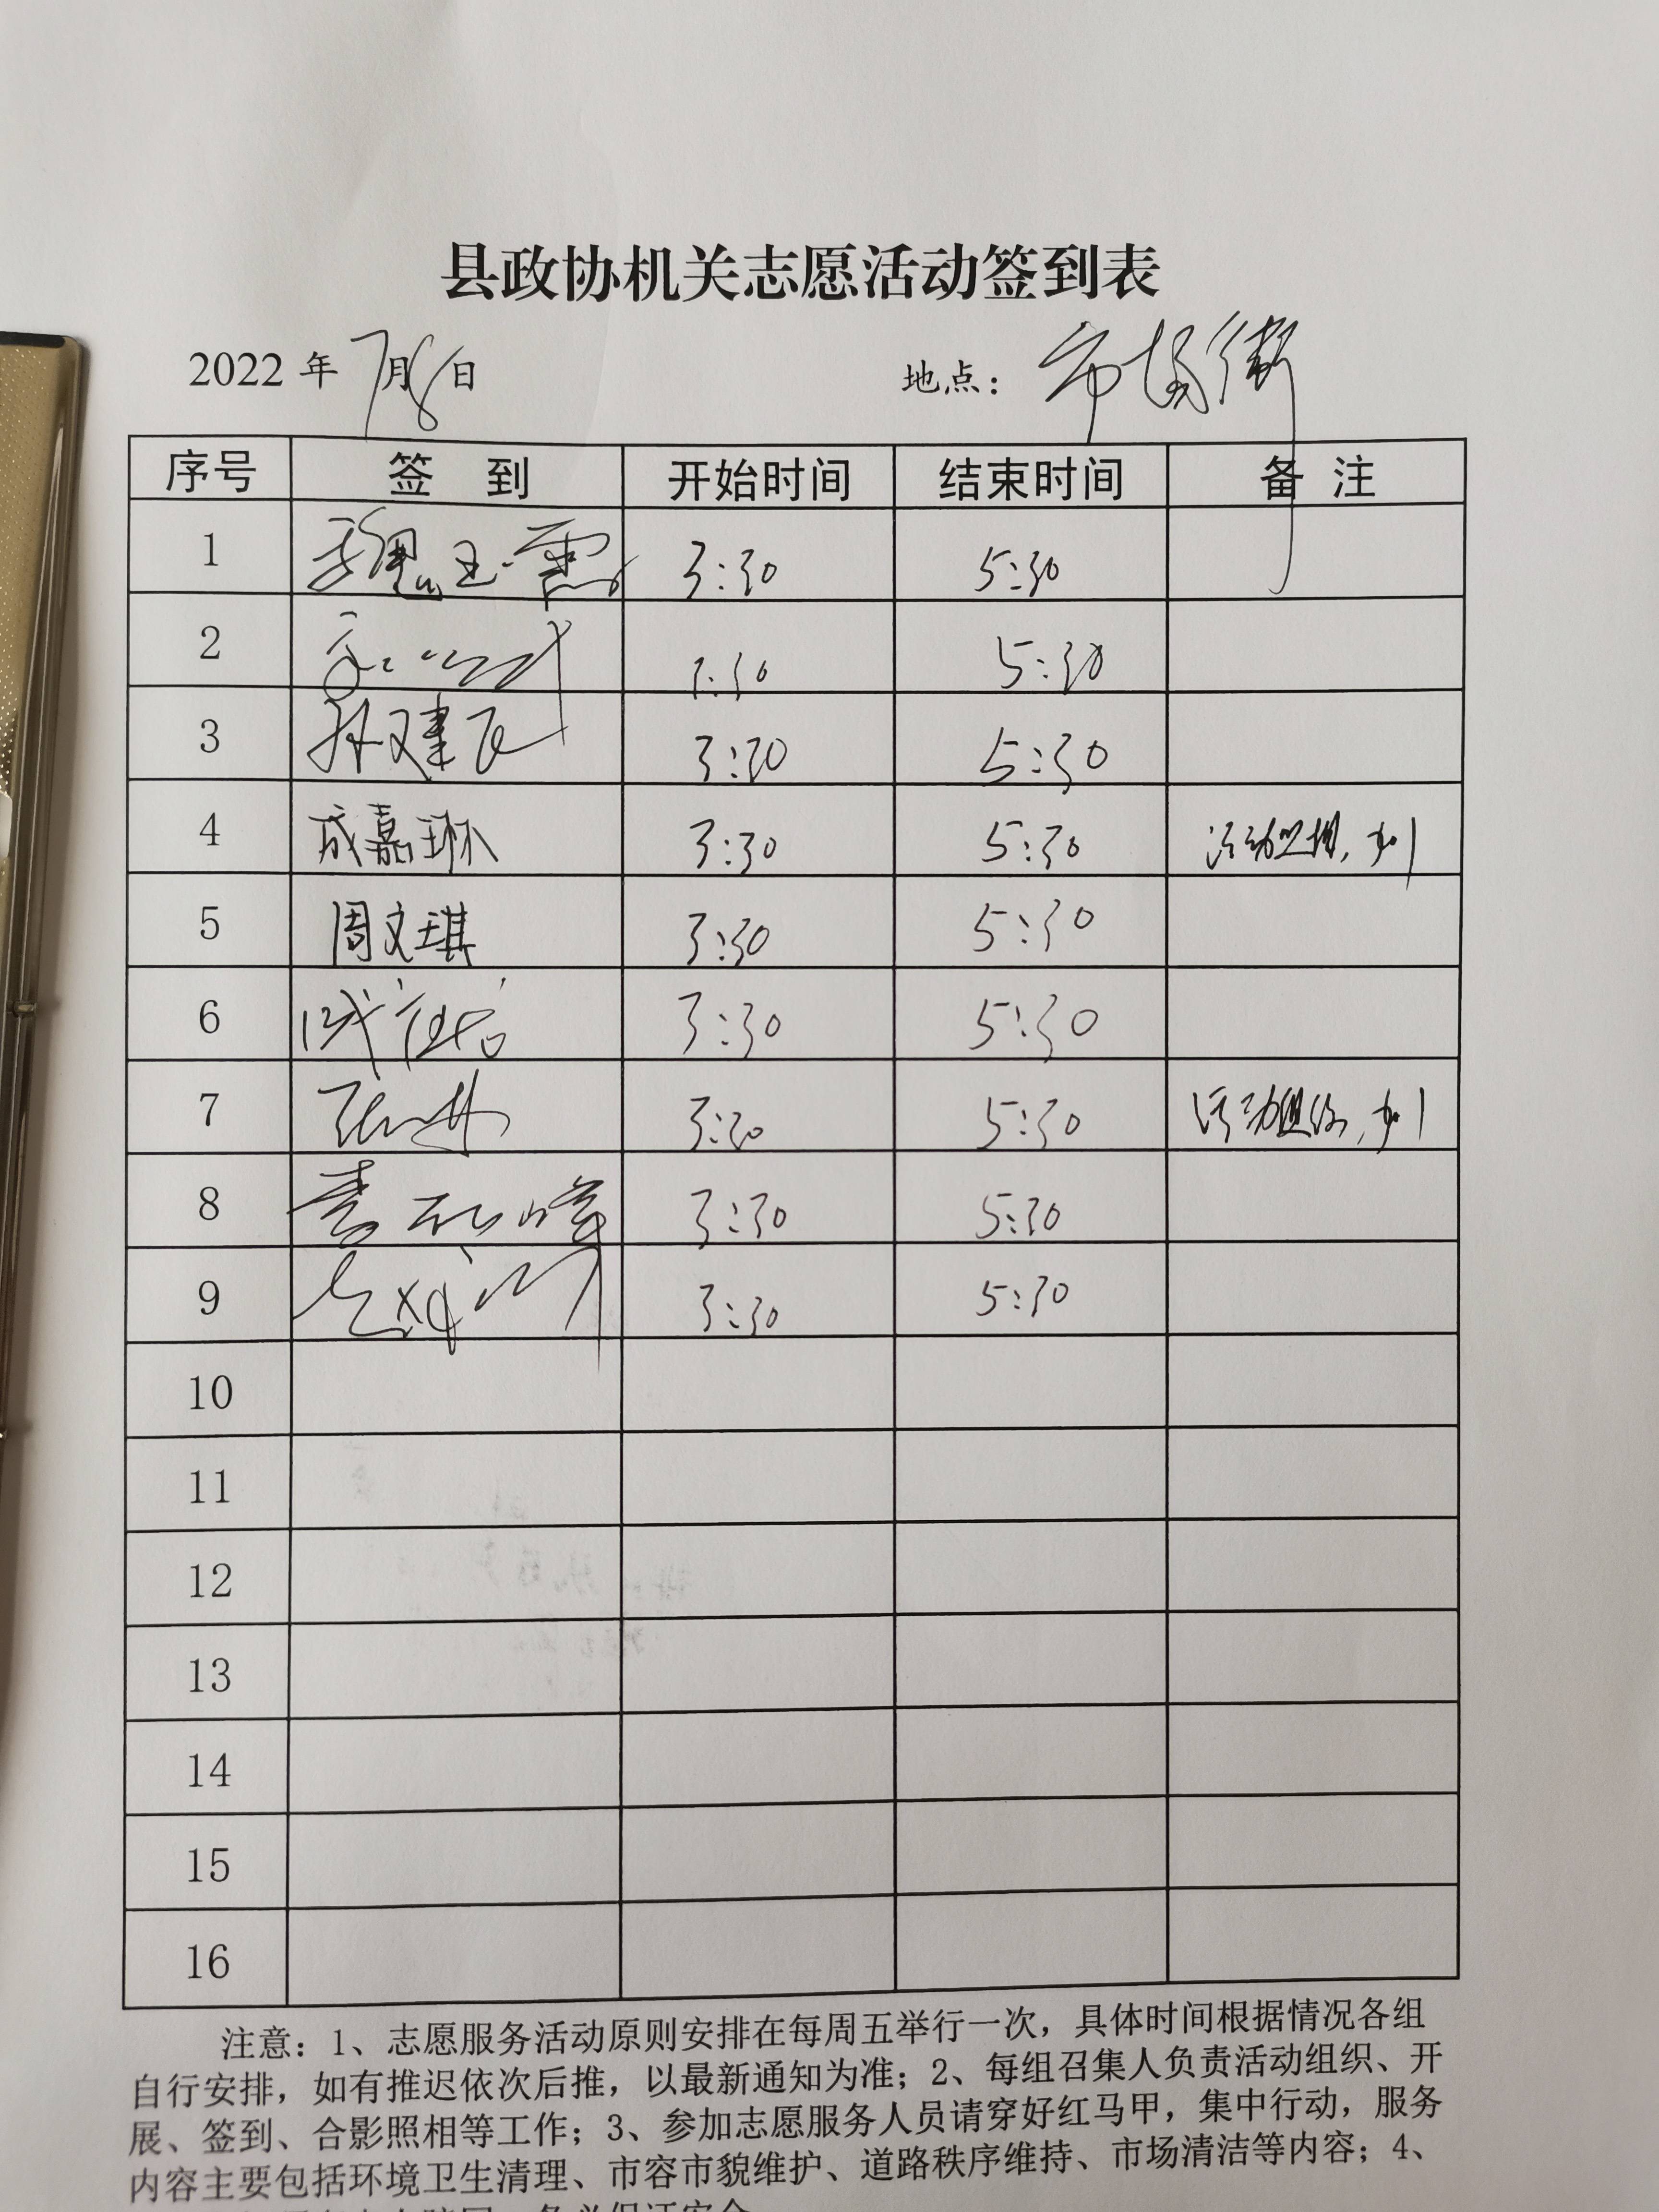 县政协机关志愿活动签到表
2022年7月8日 地点：市场街
序号 签到 开始时间 结束时间 备注
1 魏玉霞 3:30 5:30
2 5:30
3 孙建飞 3:30 5:30
4 成嘉琳 3:30 5:30 活动照相，加1
5 周文琪 3:30 5:30
6 3:30 5:30
7 3:30 5:30 活动组织，加1
8 3:30 5:30
9 3:30 5:30
10
11
12
13
14
15
16
注意：1、志愿服务活动原则安排在每周五举行一次，具体时间根据情况各组
自行安排，如有推迟依次后推，以最新通知为准；2、每组召集人负责活动组织、开
展、签到、合影照相等工作；3、参加志愿服务人员请穿好红马甲，集中行动，服务
内容主要包括环境卫生清理、市容市貌维护、道路秩序维持、市场清洁等内容；4、